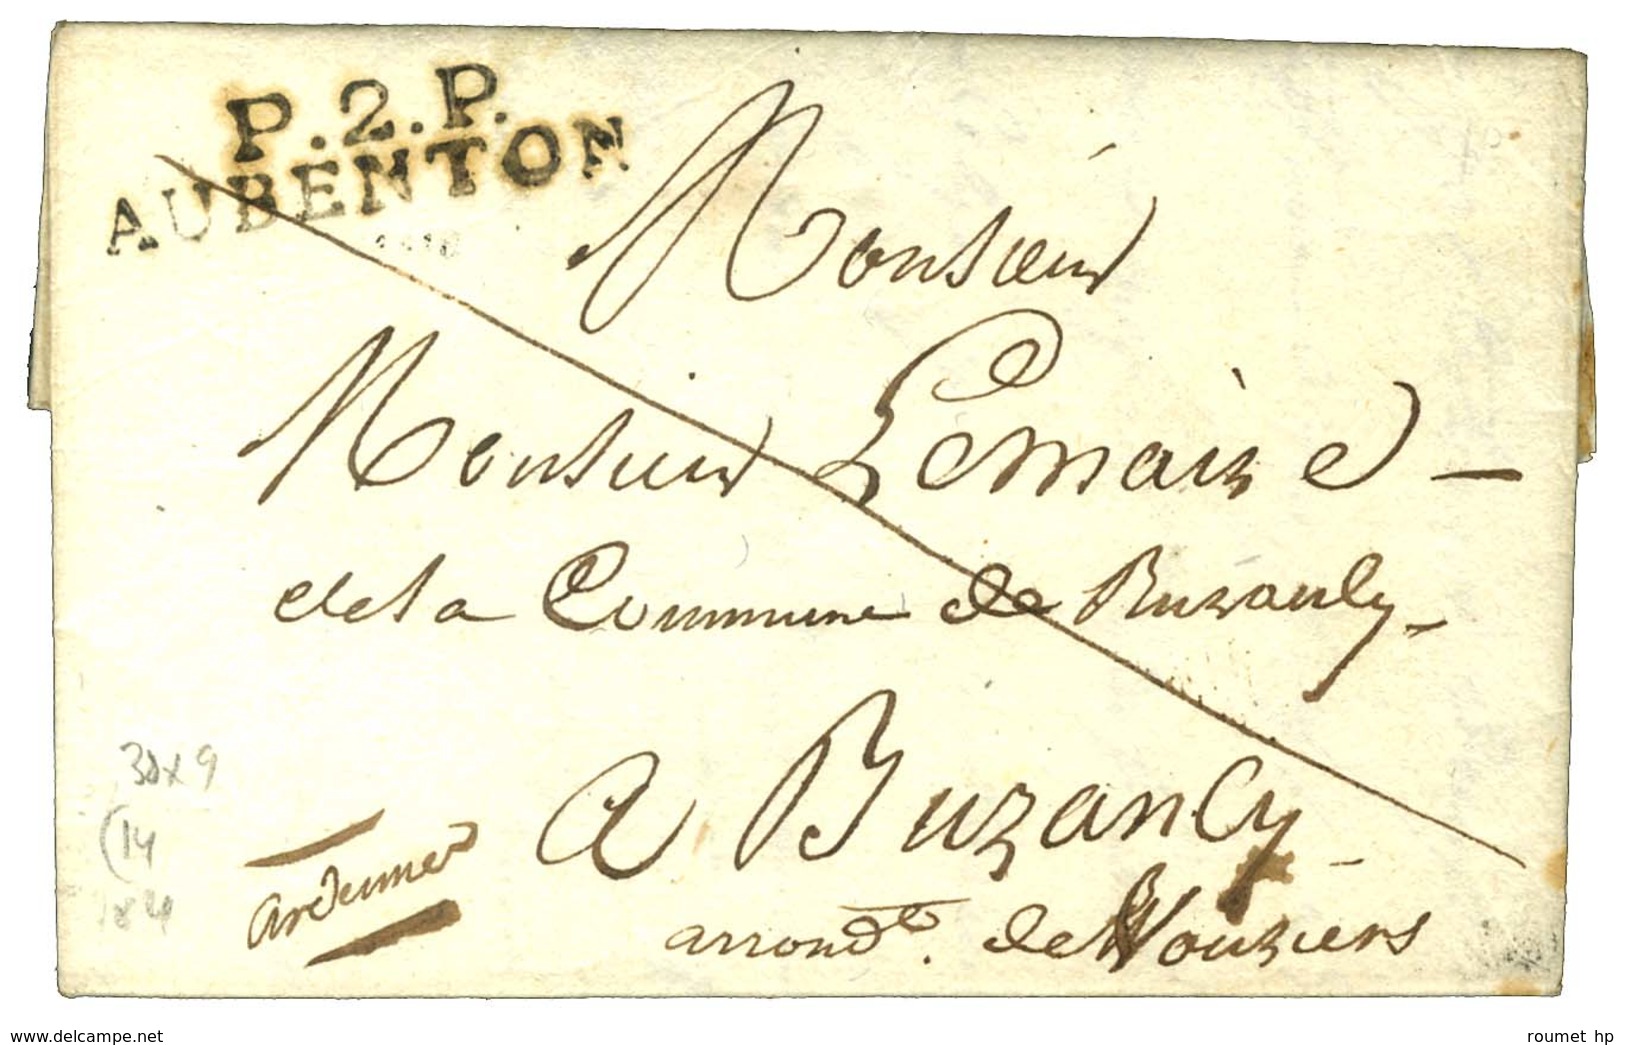 P.2.P.
AUBENTON
Monsieur
Monsieur Lemaire -
de la Commune de Buzancy -
a Buzancy -
arrondt. de Vouziers
ardennes
30 x 9
(14
delcampe.com
roumet hp